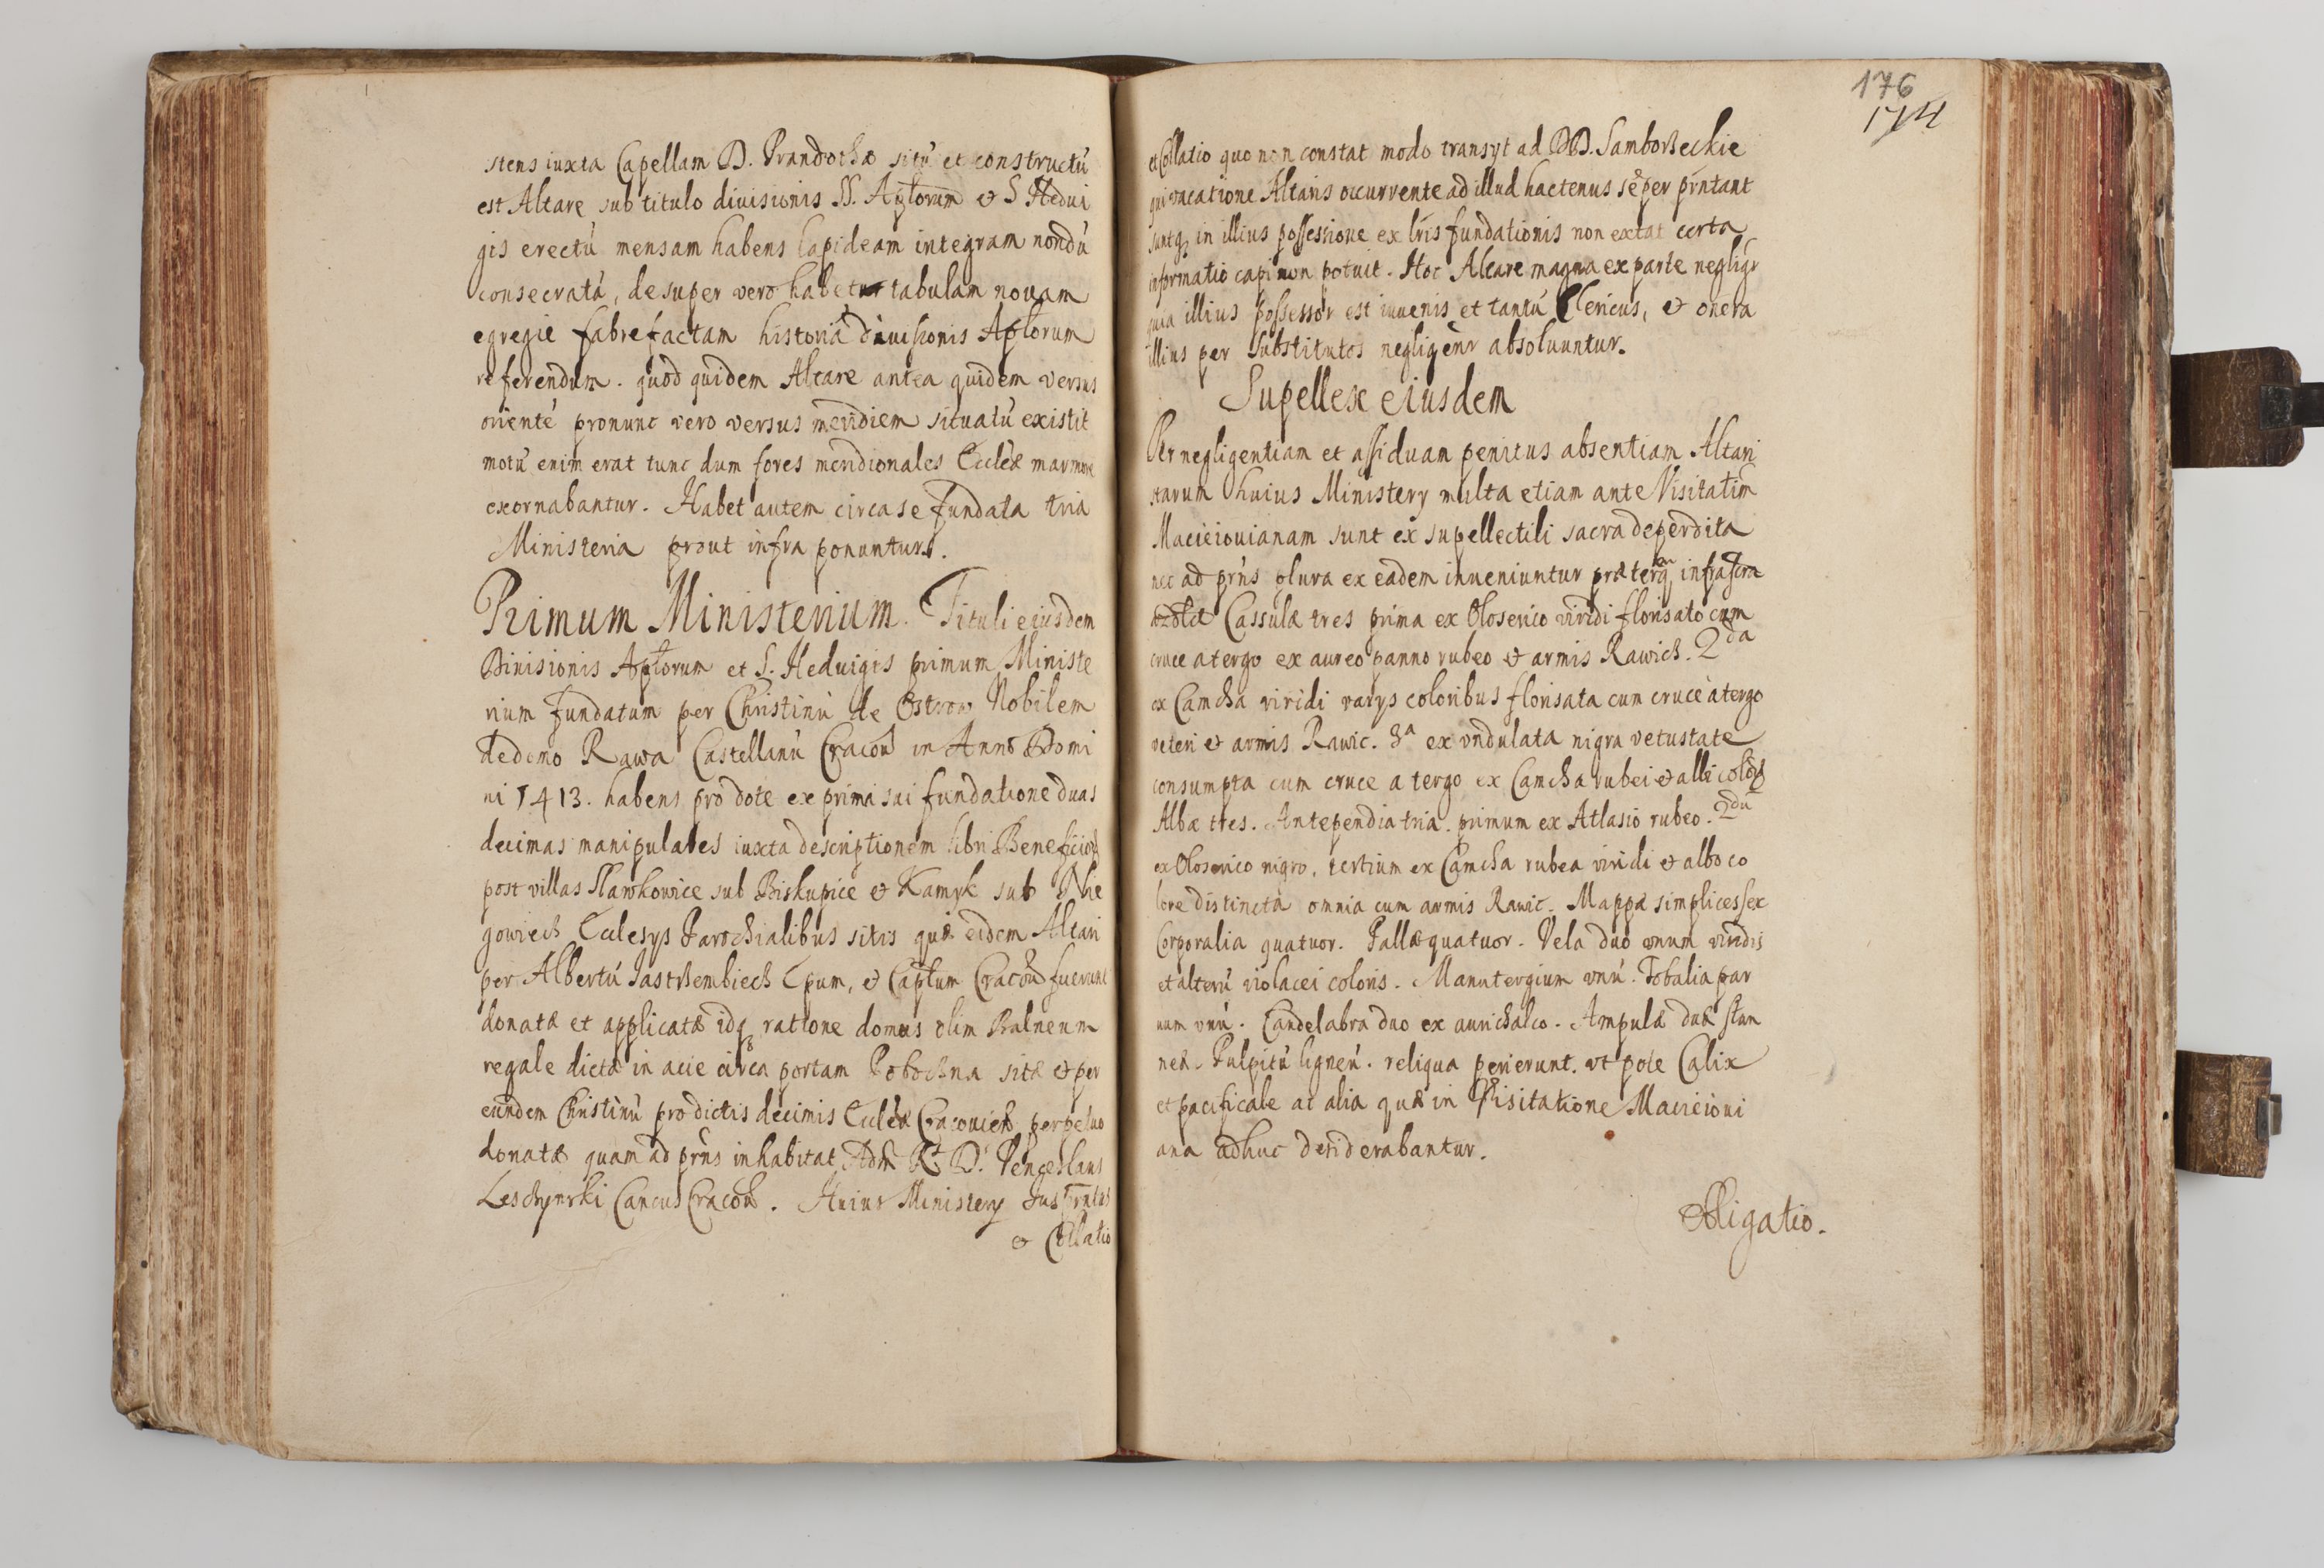 stens iuxta Capellam B. Prandothæ sitũ et constructũ
est Altare sub titulo diuisionis SS. Aplorum & S Hedui
gis erectũ mensam habens lapideam integram nondũ
consecratã, desuper vero habet tabulam nouam
egregie fabrefactam historiã diuisionis Aplorum
referendum. quod quidem Altare antea quidem versus
orientẽ pronunc vero versus meridiem situatũ existit
motũ enim erat tunc dum fores meridionales Eccleæ marmore
exornabantur. Habet autem circa se fundata tria
Ministeria prout infra ponuntur.
Primum Ministerium. Tituli eiusdem
Diuisionis Aplorum et S. Heduigis primum Ministe
rium fundatum per Christinũ de Ostrow Nobilem
de domo Rawa Castellanũ Cracoũ in Anno Domi
ni 1413. habens pro dote ex prima sui fundatione duas
decimas manipulales iuxta descriptionem libri Beneficiorũ
post villas Slawkowice sub Biskupice & Kamyk sub Nie
gowiech Ecclesijs Parochialibus sitis quæ eidem Altari
per Albertũ Jastrzembiech Epum, & Caplum Cracoũ fuerunt
donatæ et applicatæ idq ratione domus olim Balneum
regale dictæ in acie circa portam Poboczna sitæ & per
eundem Christinũ pro dictis decimis Eccleæ Cracouieñ perpetuo
donatæ quam ad prñs inhabitat Adm R. D. Venceslaus
Leschynski Cancus Cracoũ. Huius Ministerij Jus Prntus
& Collatio
176
174
et Collatio quo non constat modo transyt ad DD. Samborzeckie
qui vacatione Altaris occurrente ad illud hactenus sẽper prñtant
suntq in illius possessione ex lris fundationis non extat certa
informatio capi non potuit. Hoc Altare magna ex parte negligr
quia illius possessor est iuuenis et tantũ Clericus, & onera
illius per substitutos negligenr absoluuntur.
Supellex eiusdem
Per negligentiam et assiduam penitus absentiam Altari
starum huius Ministerij multa etiam ante Visitatim
Macieiouianam sunt ex supellectili sacra deperdita
nec ad prñs plura ex eadem inueniuntur præterq infrascra
Cassulæ tres prima ex Oloserico viridi florisato cum
cruce a tergo ex aureo panno rubeo & armis Rawich. 2da
ex Camcha viridi varys coloribus florisata cum cruce a tergo
veteri & armis Rawic. 3a ex vndulata nigra vetustate
consumpta cum cruce a tergo ex Camcha rubei & albi coloris
Albæ tres. Antependia tria. primum ex Atlasio rubeo. 2dũ
ex Oloserico nigro, tertium ex Camcha rubea viridi & albo co
lore distincta omnia cum armis Rawic. Mappæ simplices sex
Corporalia quatuor. Pallæ quatuor. Vela duo vnum viridis
et alterũ violacei coloris. Manutergium vnũ. Tobalia par
uum vnũ. Candelabra duo ex aurichalco. Ampulæ duæ stan
neæ. Pulpitũ ligneũ. reliqua perierunt. vt pote Calix
et pacificale ac alia quæ in Visitatione Macieioui
ana adhuc desiderabantur.
Obligatio.